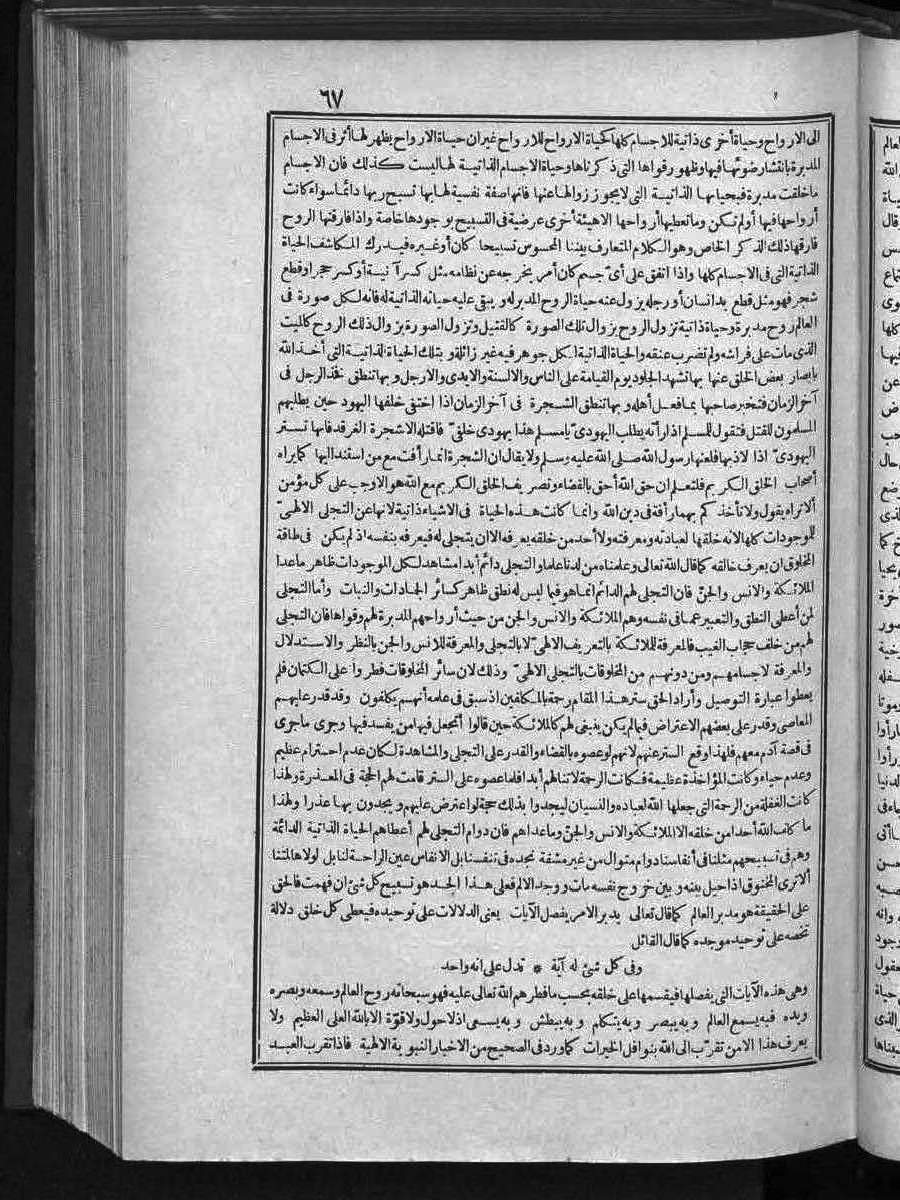 ٦٧
الى الارواح وحياة أخرى ذاتية للاجسام كلها كحياة الارواح للارواح غير ان حياة الارواح يظهر لها أثر فى الاجسام
المدبرة بانتشار ضوئها فيها وظهور قواها التى ذكرناها وحياة الاجسام الذاتيـة لها ليست كذلك فان الاجسام
ما خلقت مدبرة فبحياتها الذاتيـة التى لا يجوز زوالها عنها فانها صفة نفسية لها بها تسبح ربها دائما سواء كانت
أرواحها فيها أو لم تكن وما تعطيها أرواحها الا هيئة أخرى عرضية فى التسبيح بوجودها خاصة واذا فارقتها الروح
فارقها ذلك الذكر الخاص وهو الكلام المتعارف بيننا المحسوس تسبيحا كان أو غيره فيدرك المكاشف الحياة
الذاتية التى فى الاجسام كلها واذا اتفق على أىّ جسم كان أمر يخرجه عن نظامه مثل كسر آنية أو كسر حجر أو قطع
شجر فهو مثل قطع يد انسان أو رجله يزول عنه حياة الروح المدبر له ويبقى عليه حياته الذاتية له فانه لكل صورة فى
العالم روح مدبرة وحياة ذاتية تزول الروح بزوال تلك الصورة كالقتيل وتزول الصورة بزوال ذلك الروح كالميت
الذى مات على فراشه ولم تضرب عنقه والحياة الذاتية لكل جوهر فيه غير زائلة وبتلك الحياة الذاتيـة التى أخذ الله
بابصار بعض الخلق عنها بها تشهد الجلود يوم القيامة على الناس والالسنة والايدى والارجل وبها تنطق فخذ الرجل فى
آخر الزمان فتخبر صاحبها بما فعـل أهله وبها تنطق الشـجرة فى آخر الزمان اذا اختفى خلفها اليهود حين يطلبهم
المسلمون للقتل فتقول للمسلم اذا رأته يطلب اليهودىّ يا مسلم هذا يهودى خلفىّ فاقتله الا شجرة الغرقد فانها تستر
اليهودىّ اذا لاذ بها فلعنها رسول الله صلى الله عليه وسلم ولا يقال ان الشجرة انما رأفت مع من استند اليها كما يراه
أصحاب الخلق الكريم فلتعلم ان حق الله أحق بالقضاء وتصريف الخلق الكريم مع الله هو الاوجب على كل مؤمن
ألا تراه يقول ولا تأخذكم بهما رأفة فى دين الله وانما كانت هـذه الحياة فى الاشياء ذاتية لانها عن التجلى الالهىّ
للموجودات كلها لانه خلقها لعبادته ومعرفته ولا أحد من خلقه يعرفه الا ان يتجلى له فيعرفه بنفسه اذ لم يكن فى طاقة
المخلوق ان يعرف خالقه كما قال الله تعالى وعلمناه من لدنا علما والتجلى دائم أبدا مشاهد لكل الموجودات ظاهر ما عدا
الملائكة والانس والجنّ فان التجلى لهم الدائم انما هو فيما ليس له نطق ظاهر كسائر الجمادات والنبات وأما التجلى
لمن أعطى النطق والتعبير عما فى نفسه وهم الملائكة والانس والجن من حيث أرواحهم المدبرة لهم وقواها فان التجلى
لهم من خلف حجاب الغيب فالمعرفة للملائكة بالتعريف الالهىّ لا بالتجلى والمعرفة للانس والجن بالنظر والاستدلال
والمعرفة لاجسامهم ومن دونهم من المخلوقات بالتجلى الالهىّ وذلك لان سائر المخلوقات فطروا على الكتمان فلم
يعطوا عبارة التوصيل وأراد الحق ستر هـذا المقام رحمة بالمكلفين اذ سبق فى علمه أنهـم يكلفون وقد قدر عليهم
المعاصى وقدر على بعضهم الاعتراض فيما لم يكن ينبغى لهم كالملائكة حين قالوا أتجعل فيها من يفسد فيها وجرى ما جرى
فى قصة آدم معهم فلهذا وقع الستر عنهم لانهم لو عصوه بالقضاء والقدر على التجلى والمشاهدة لكان عدم احترام عظيم
وعدم حياء وكانت المؤاخذة عظيمة فكانت الرحمة لا تنالهم أبدا فلما عصوه على الستر قامت لهم الحجة فى المعذرة ولهذا
كانت الغفلة من الرحمة التى جعلها الله لعباده والنسيان ليجدوا بذلك حجة لو اعترض عليهم ويجدون بها عذرا ولهذا
ما كلف الله أحدا من خلقه الا الملائكة والانس والجنّ وما عداهم فان دوام التجلى لهم أعطاهم الحياة الذاتية الدائمة
وهم فى تسبيحهم مثلنا فى أنفاسنا دوام متوال من غير مشقة نجده فى تنفسنا بل الانفاس عين الراحـة لنا بل لولاها لمتنا
ألا ترى المخنوق اذا حيل بينه وبين خروج نفسه مات ووجد الالم فعلى هـذا الحـد هو تسبيح كل شئ ان فهمت فالحق
على الحقيقة هو مدبر العالم كما قال تعالى يدبر الامر يفصل الآيات يعنى الدلالات على توحيده فيعطى كل خلق دلالة
تخصه على توحيد موجده كما قال القائل
وفى كل شئ له آية * تدل على انه واحد
وهى هذه الآيات التى يفصلها فيقسمها على خلقه بحسب ما فطرهم الله تعالى عليه فهو سبحانه روح العالم وسمعه وبصره
ويده فبه يسمع العالم وبه يبصر وبه يتكلم وبه يبطش وبه يسـعى اذ لا حول ولا قوّة الا بالله العلى العظيم ولا
يعرف هذا الا من تقرّب الى الله بنوافل الخيرات كما ورد فى الصحيح من الاخبار النبوية الالهية فاذا تقرب العبـد